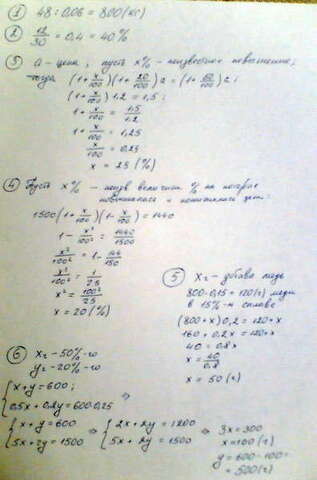 ① 48 : 0,06 = 800 (кг)
② 12/30 = 0,4 = 40%
③ a - цена, пусть x% - неизвестное повышение;
тогда (1 + x/100)(1 + 20/100) a = (1 + 50/100) a;
(1 + x/100) 1,2 = 1,5;
1 + x/100 = 1,5/1,2
1 + x/100 = 1,25
x/100 = 0,25
x = 25 (%)
④ Пусть x% -
1500 (1 + x/100)(1 - x/100) = 1440
1 - x²/100² = 1440/1500
x²/100² = 1 - 144/150
x²/100² = 1/25
x² = 100²/25
x = 20 (%)
⑤ x г - добавл
800 · 0,15 = 120 (г) меди
в 15%-м сплаве
(800 + x) 0,2 = 120 + x
160 + 0,2x = 120 + x
40 = 0,8x
x = 40/0,8
x = 50 (г)
⑥ x г - 50%-го
y г - 20%-го
{ x + y = 600;
0,5x + 0,2y = 600 · 0,25 ⇒
{ x + y = 600
5x + 2y = 1500 ⇒ { 2x + 2y = 1200
5x + 2y = 1500 ⇒ 3x = 300
x = 100 (г)
y = 600 - 100 =
= 500 (г)